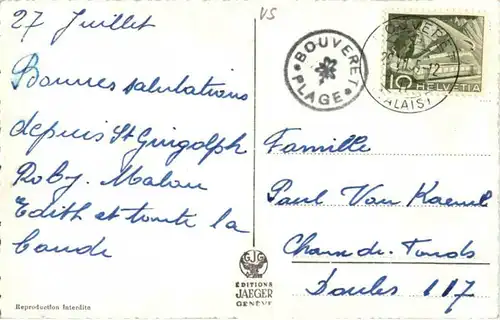 27 Juillet
VS
Bonnes salutations
depuis St Gingolph
Roby. Malou
Edith et toute la
bande
BOUVERET
PLAGE
BOUVERET
VALAIS
10
HELVETIA
Famille
Paul Von Kaenel
Chaux-de-Fonds
Doubs 117
ÉDITIONS
JAEGER
GENÈVE
Reproduction Interdite